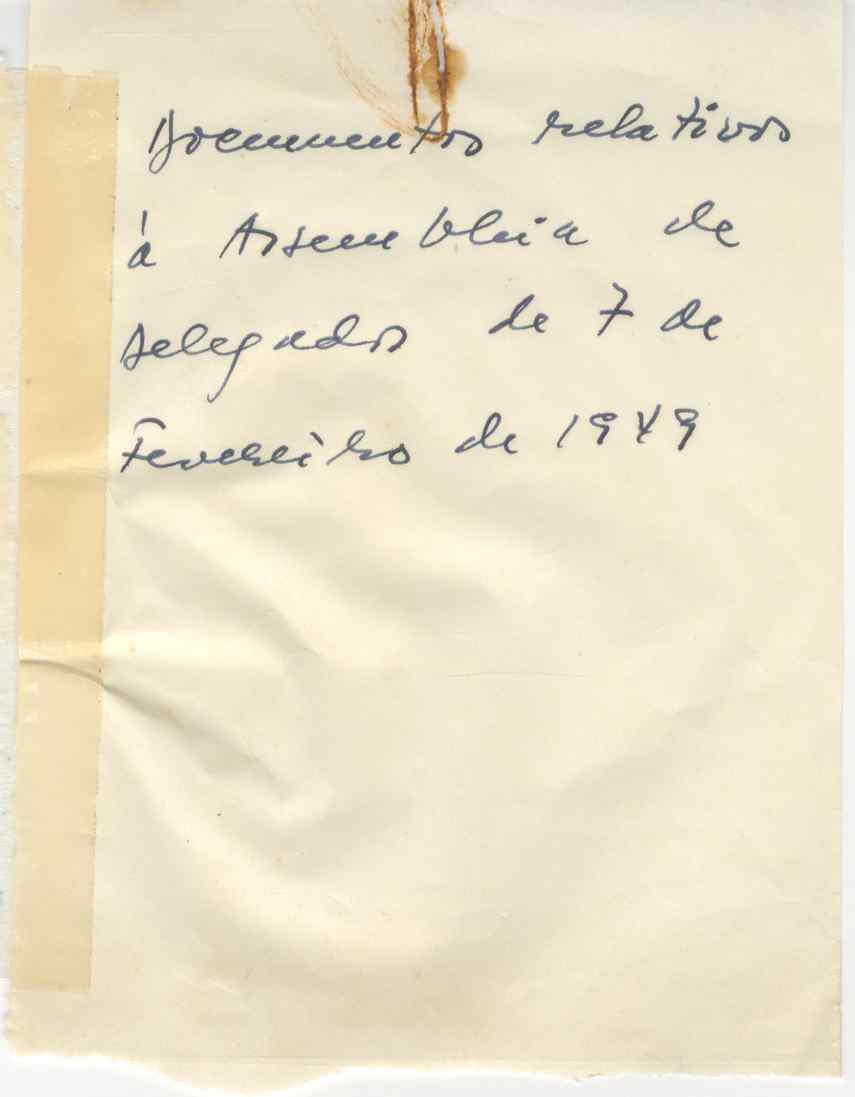 Documentos relativos
à Assembleia de
delegados de 7 de
Fevereiro de 1949